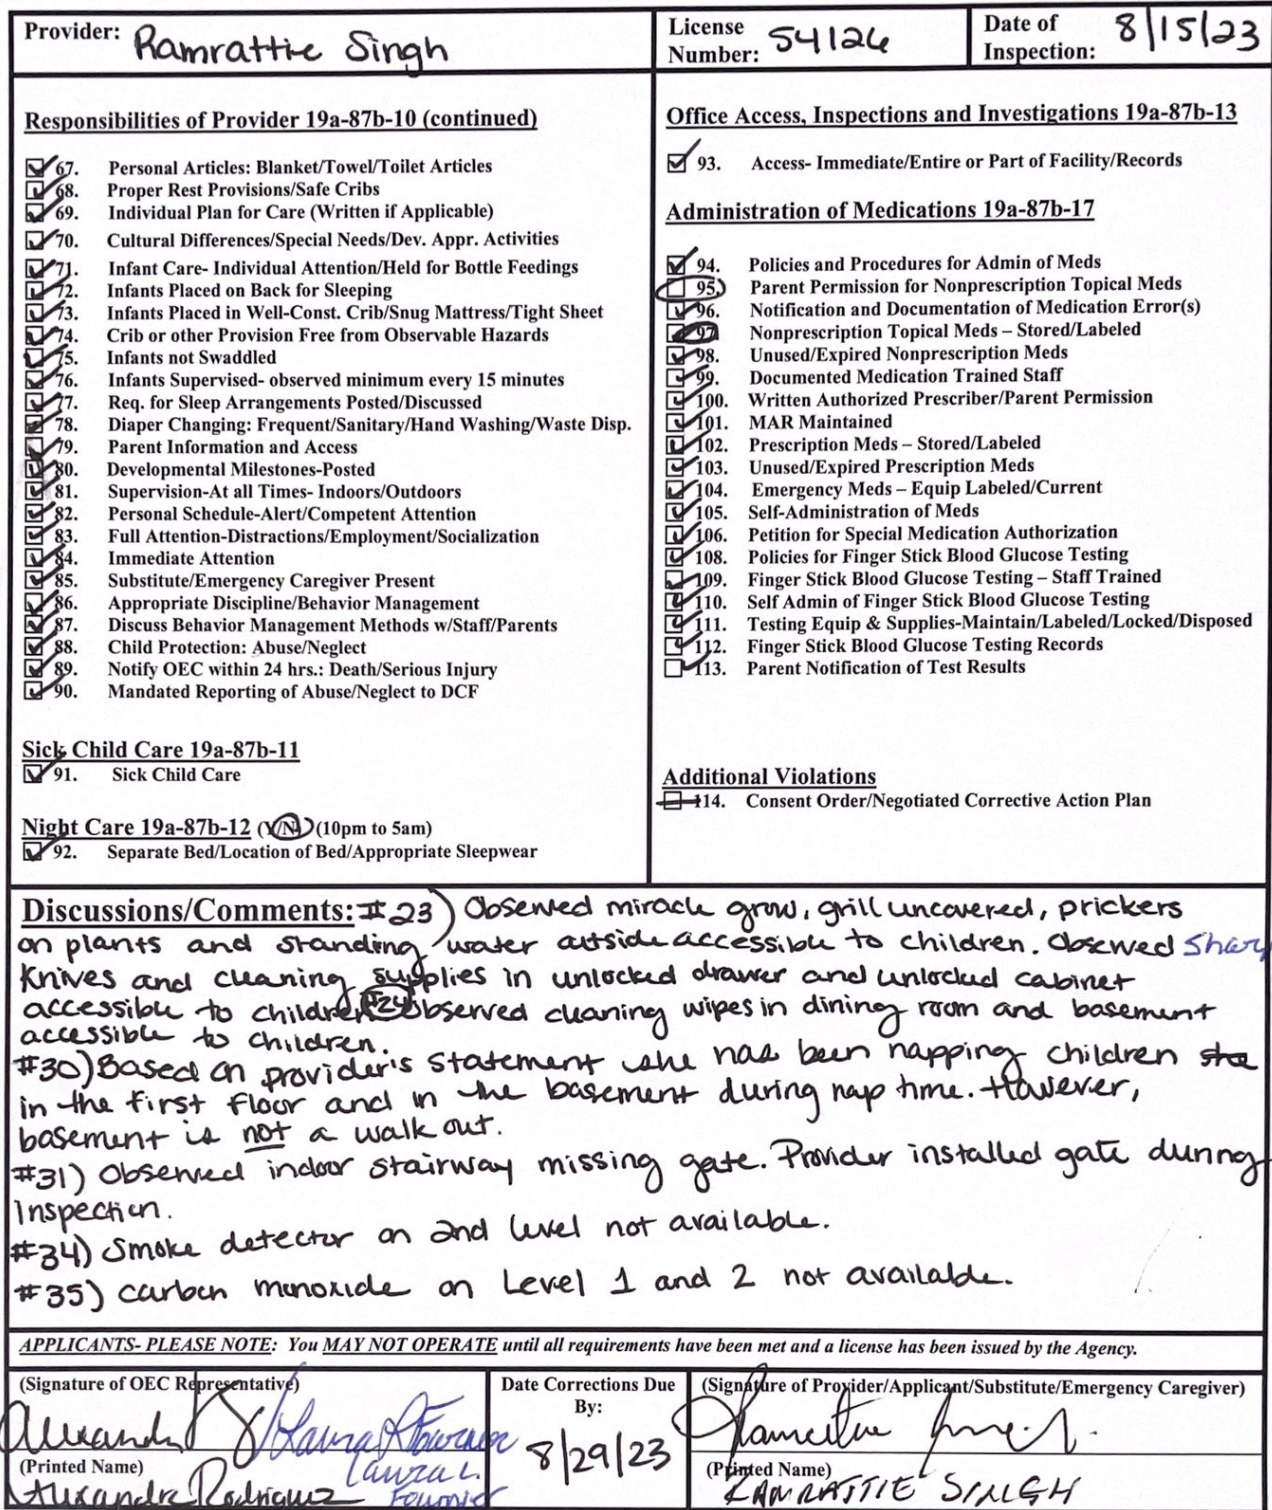 Provider: Ramrattie Singh
License Number: 54126
Date of Inspection: 8/15/23
Responsibilities of Provider 19a-87b-10 (continued)
67. Personal Articles: Blanket/Towel/Toilet Articles
68. Proper Rest Provisions/Safe Cribs
69. Individual Plan for Care (Written if Applicable)
70. Cultural Differences/Special Needs/Dev. Appr. Activities
71. Infant Care- Individual Attention/Held for Bottle Feedings
72. Infants Placed on Back for Sleeping
73. Infants Placed in Well-Const. Crib/Snug Mattress/Tight Sheet
74. Crib or other Provision Free from Observable Hazards
75. Infants not Swaddled
76. Infants Supervised- observed minimum every 15 minutes
77. Req. for Sleep Arrangements Posted/Discussed
78. Diaper Changing: Frequent/Sanitary/Hand Washing/Waste Disp.
79. Parent Information and Access
80. Developmental Milestones-Posted
81. Supervision-At all Times- Indoors/Outdoors
82. Personal Schedule-Alert/Competent Attention
83. Full Attention-Distractions/Employment/Socialization
84. Immediate Attention
85. Substitute/Emergency Caregiver Present
86. Appropriate Discipline/Behavior Management
87. Discuss Behavior Management Methods w/Staff/Parents
88. Child Protection: Abuse/Neglect
89. Notify OEC within 24 hrs.: Death/Serious Injury
90. Mandated Reporting of Abuse/Neglect to DCF
Sick Child Care 19a-87b-11
91. Sick Child Care
Night Care 19a-87b-12 (Y/N) (10pm to 5am)
92. Separate Bed/Location of Bed/Appropriate Sleepwear
Office Access, Inspections and Investigations 19a-87b-13
93. Access- Immediate/Entire or Part of Facility/Records
Administration of Medications 19a-87b-17
94. Policies and Procedures for Admin of Meds
95. Parent Permission for Nonprescription Topical Meds
96. Notification and Documentation of Medication Error(s)
97. Nonprescription Topical Meds – Stored/Labeled
98. Unused/Expired Nonprescription Meds
99. Documented Medication Trained Staff
100. Written Authorized Prescriber/Parent Permission
101. MAR Maintained
102. Prescription Meds – Stored/Labeled
103. Unused/Expired Prescription Meds
104. Emergency Meds – Equip Labeled/Current
105. Self-Administration of Meds
106. Petition for Special Medication Authorization
108. Policies for Finger Stick Blood Glucose Testing
109. Finger Stick Blood Glucose Testing – Staff Trained
110. Self Admin of Finger Stick Blood Glucose Testing
111. Testing Equip & Supplies-Maintain/Labeled/Locked/Disposed
112. Finger Stick Blood Glucose Testing Records
113. Parent Notification of Test Results
Additional Violations
114. Consent Order/Negotiated Corrective Action Plan
Discussions/Comments: #23) Observed miracle grow, grill uncovered, prickers
on plants and standing water outside accessible to children. Observed Sharp
Knives and cleaning supplies in unlocked drawer and unlocked cabinet
accessible to children. #24 Observed cleaning wipes in dining room and basement
accessible to children.
#30) Based on provider's statement she has been napping children
in the first floor and in the basement during nap time. However,
basement is not a walk out.
#31) Observed indoor stairway missing gate. Provider installed gate during
Inspection.
#34) Smoke detector on 2nd level not available.
#35) carbon monoxide on Level 1 and 2 not available.
APPLICANTS- PLEASE NOTE: You MAY NOT OPERATE until all requirements have been met and a license has been issued by the Agency.
(Signature of OEC Representative)
(Printed Name)
Alexandra Rodriguez
Laura L. Fournier
Date Corrections Due
By:
8/29/23
(Signature of Provider/Applicant/Substitute/Emergency Caregiver)
(Printed Name)
RAMRATTIE SINGH